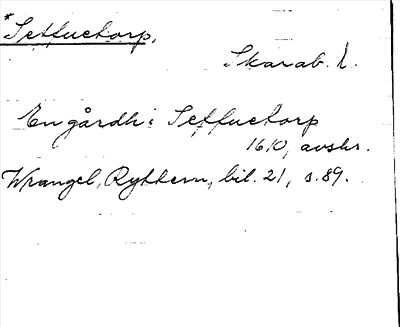 *Setfuetorp,
Skarab. l.
En gårdh i Setfuetorp
1610, avskr.
Wrangel, Ryttern, bil. 21, s. 89.